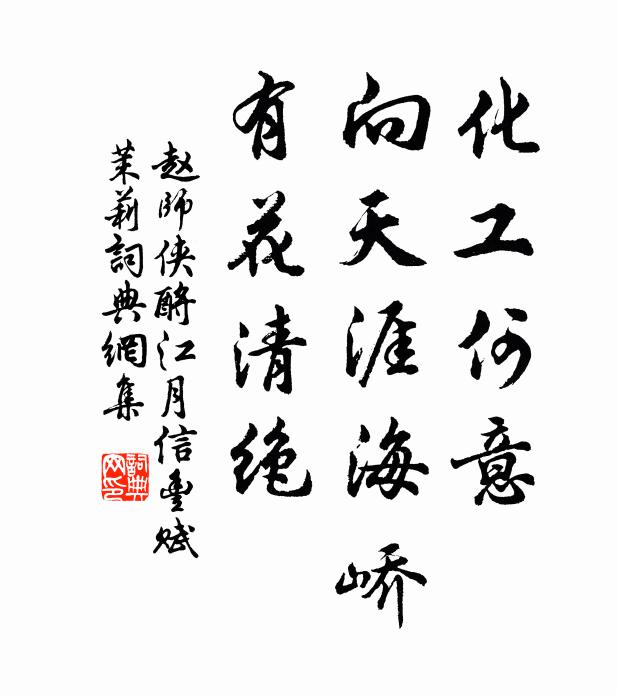 化工何意
向天涯海峤
有花清绝
赵師侠酹江月信豐赋
茉莉詞典網集
詞典网印